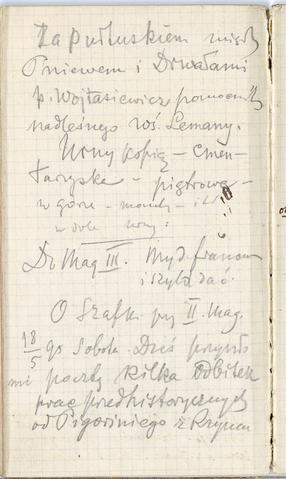 Za Pułtuskiem między
Pniewem i Drwałami
p. Wojtasiewicz pomocnik
nadleśnego wś. Lemany.
Urny kopią – cmen-
tarzyska – piętrowe –
w górze – monety –
w dole urny.
Do Mag III. Mydł.
i szyld dać.
O Szafk. przy II. Mag.
18/5 90 Sobota. Dziś przysło
mi pocztą kilka odbitek
prac przedhistorycznych
od Pigoriniego z Rzymu